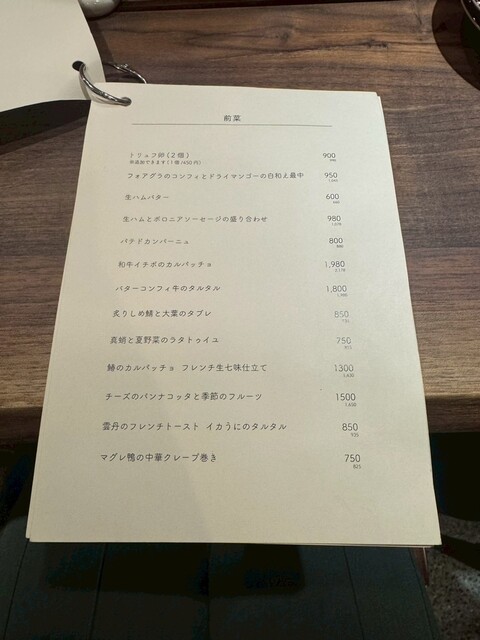 前菜
トリュフ卵(2個) 900
※追加できます(1個/450円) 990
フォアグラのコンフィとドライマンゴーの白和え最中 950
1,045
生ハムバター 600
660
生ハムとボロニアソーセージの盛り合わせ 980
1,078
パテドカンパーニュ 800
880
和牛イチボのカルパッチョ 1,980
2,178
バターコンフィ牛のタルタル 1,800
1,980
炙りしめ鯖と大葉のタブレ 850
真蛸と夏野菜のラタトゥイユ 750
鰆のカルパッチョ フレンチ生七味仕立て 1300
1,430
チーズのパンナコッタと季節のフルーツ 1500
1,650
雲丹のフレンチトースト イカうにのタルタル 850
935
マグレ鴨の中華クレープ巻き 750
825